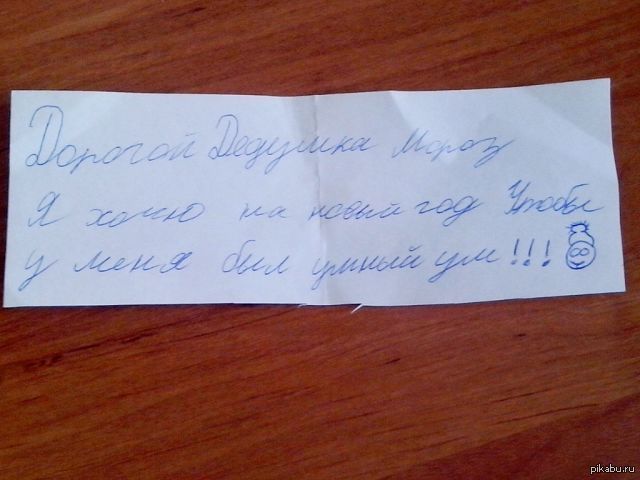 Дорогой Дедушка Мороз
Я хочю на новый год Чтобы
у меня был умный ум!!!
pikabu.ru